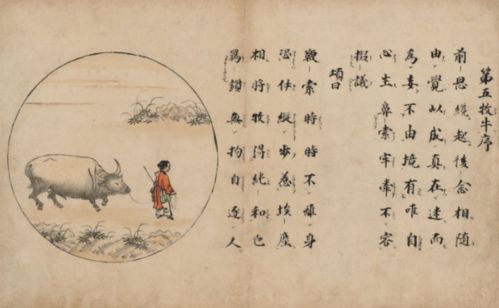 第五牧牛序
前思纔起後念相隨
由覺以成真在迷而
爲妄不由境有唯自
心生鼻索牢牽不容
擬議
頌曰
鞭索時時不離身
恐伊縱步惹埃塵
相將牧得純和也
羈鎖無拘自逐人